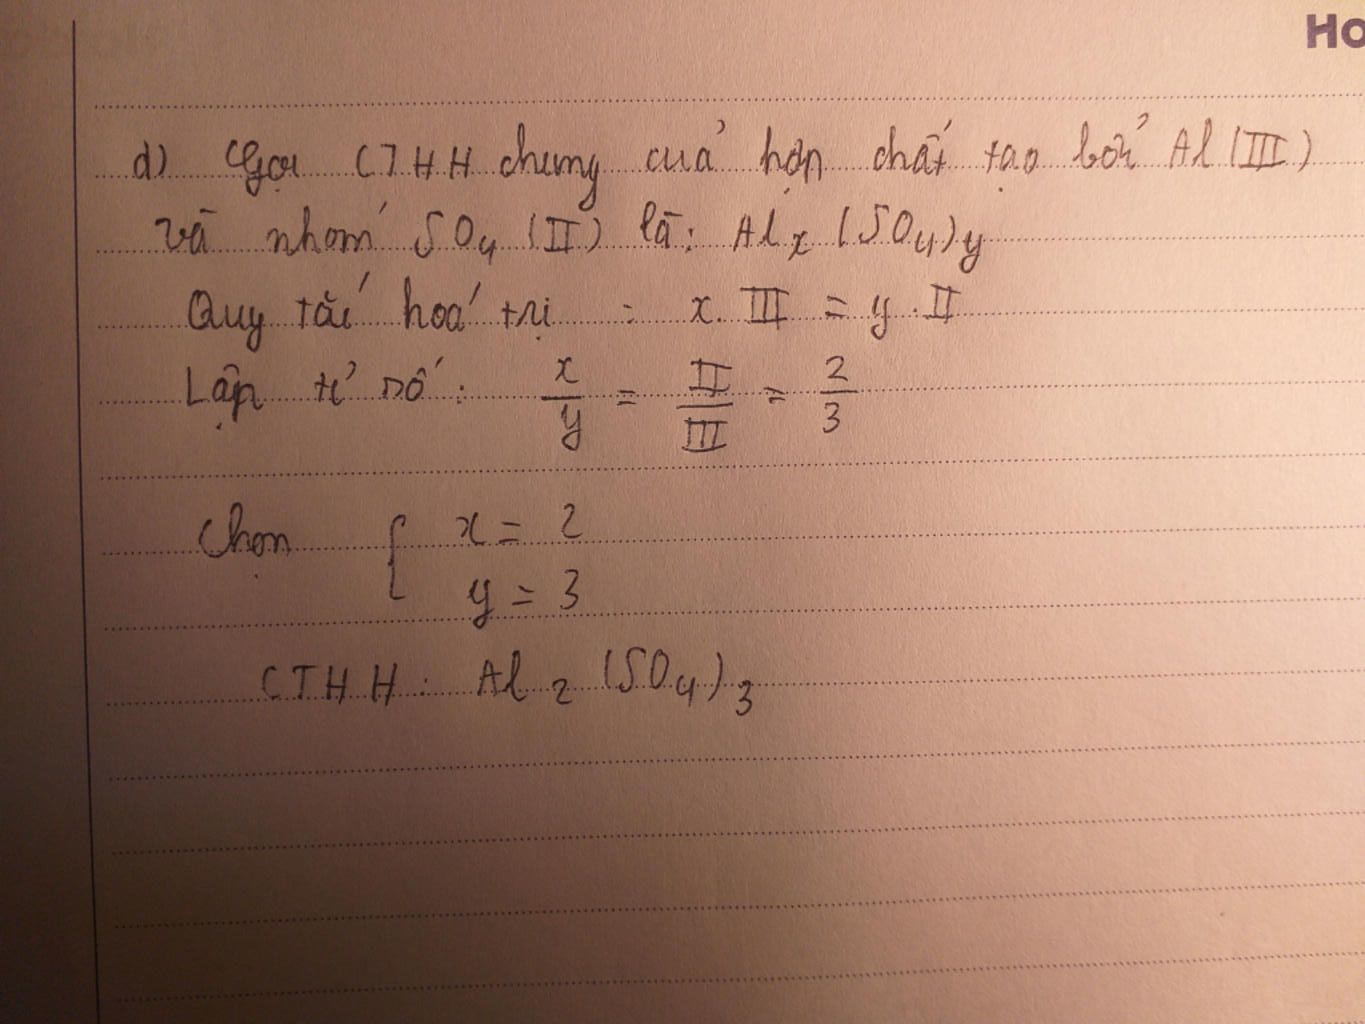 Ho
d) Gọi CTHH chung của hợp chất tạo bởi Al (III)
và nhóm SO₄ (II) là: Alₓ (SO₄)y
Quy tắc hoá trị : x. III = y. II
Lập tỉ số : x/y = II/III = 2/3
Chọn { x = 2
y = 3
CTHH : Al₂ (SO₄)₃